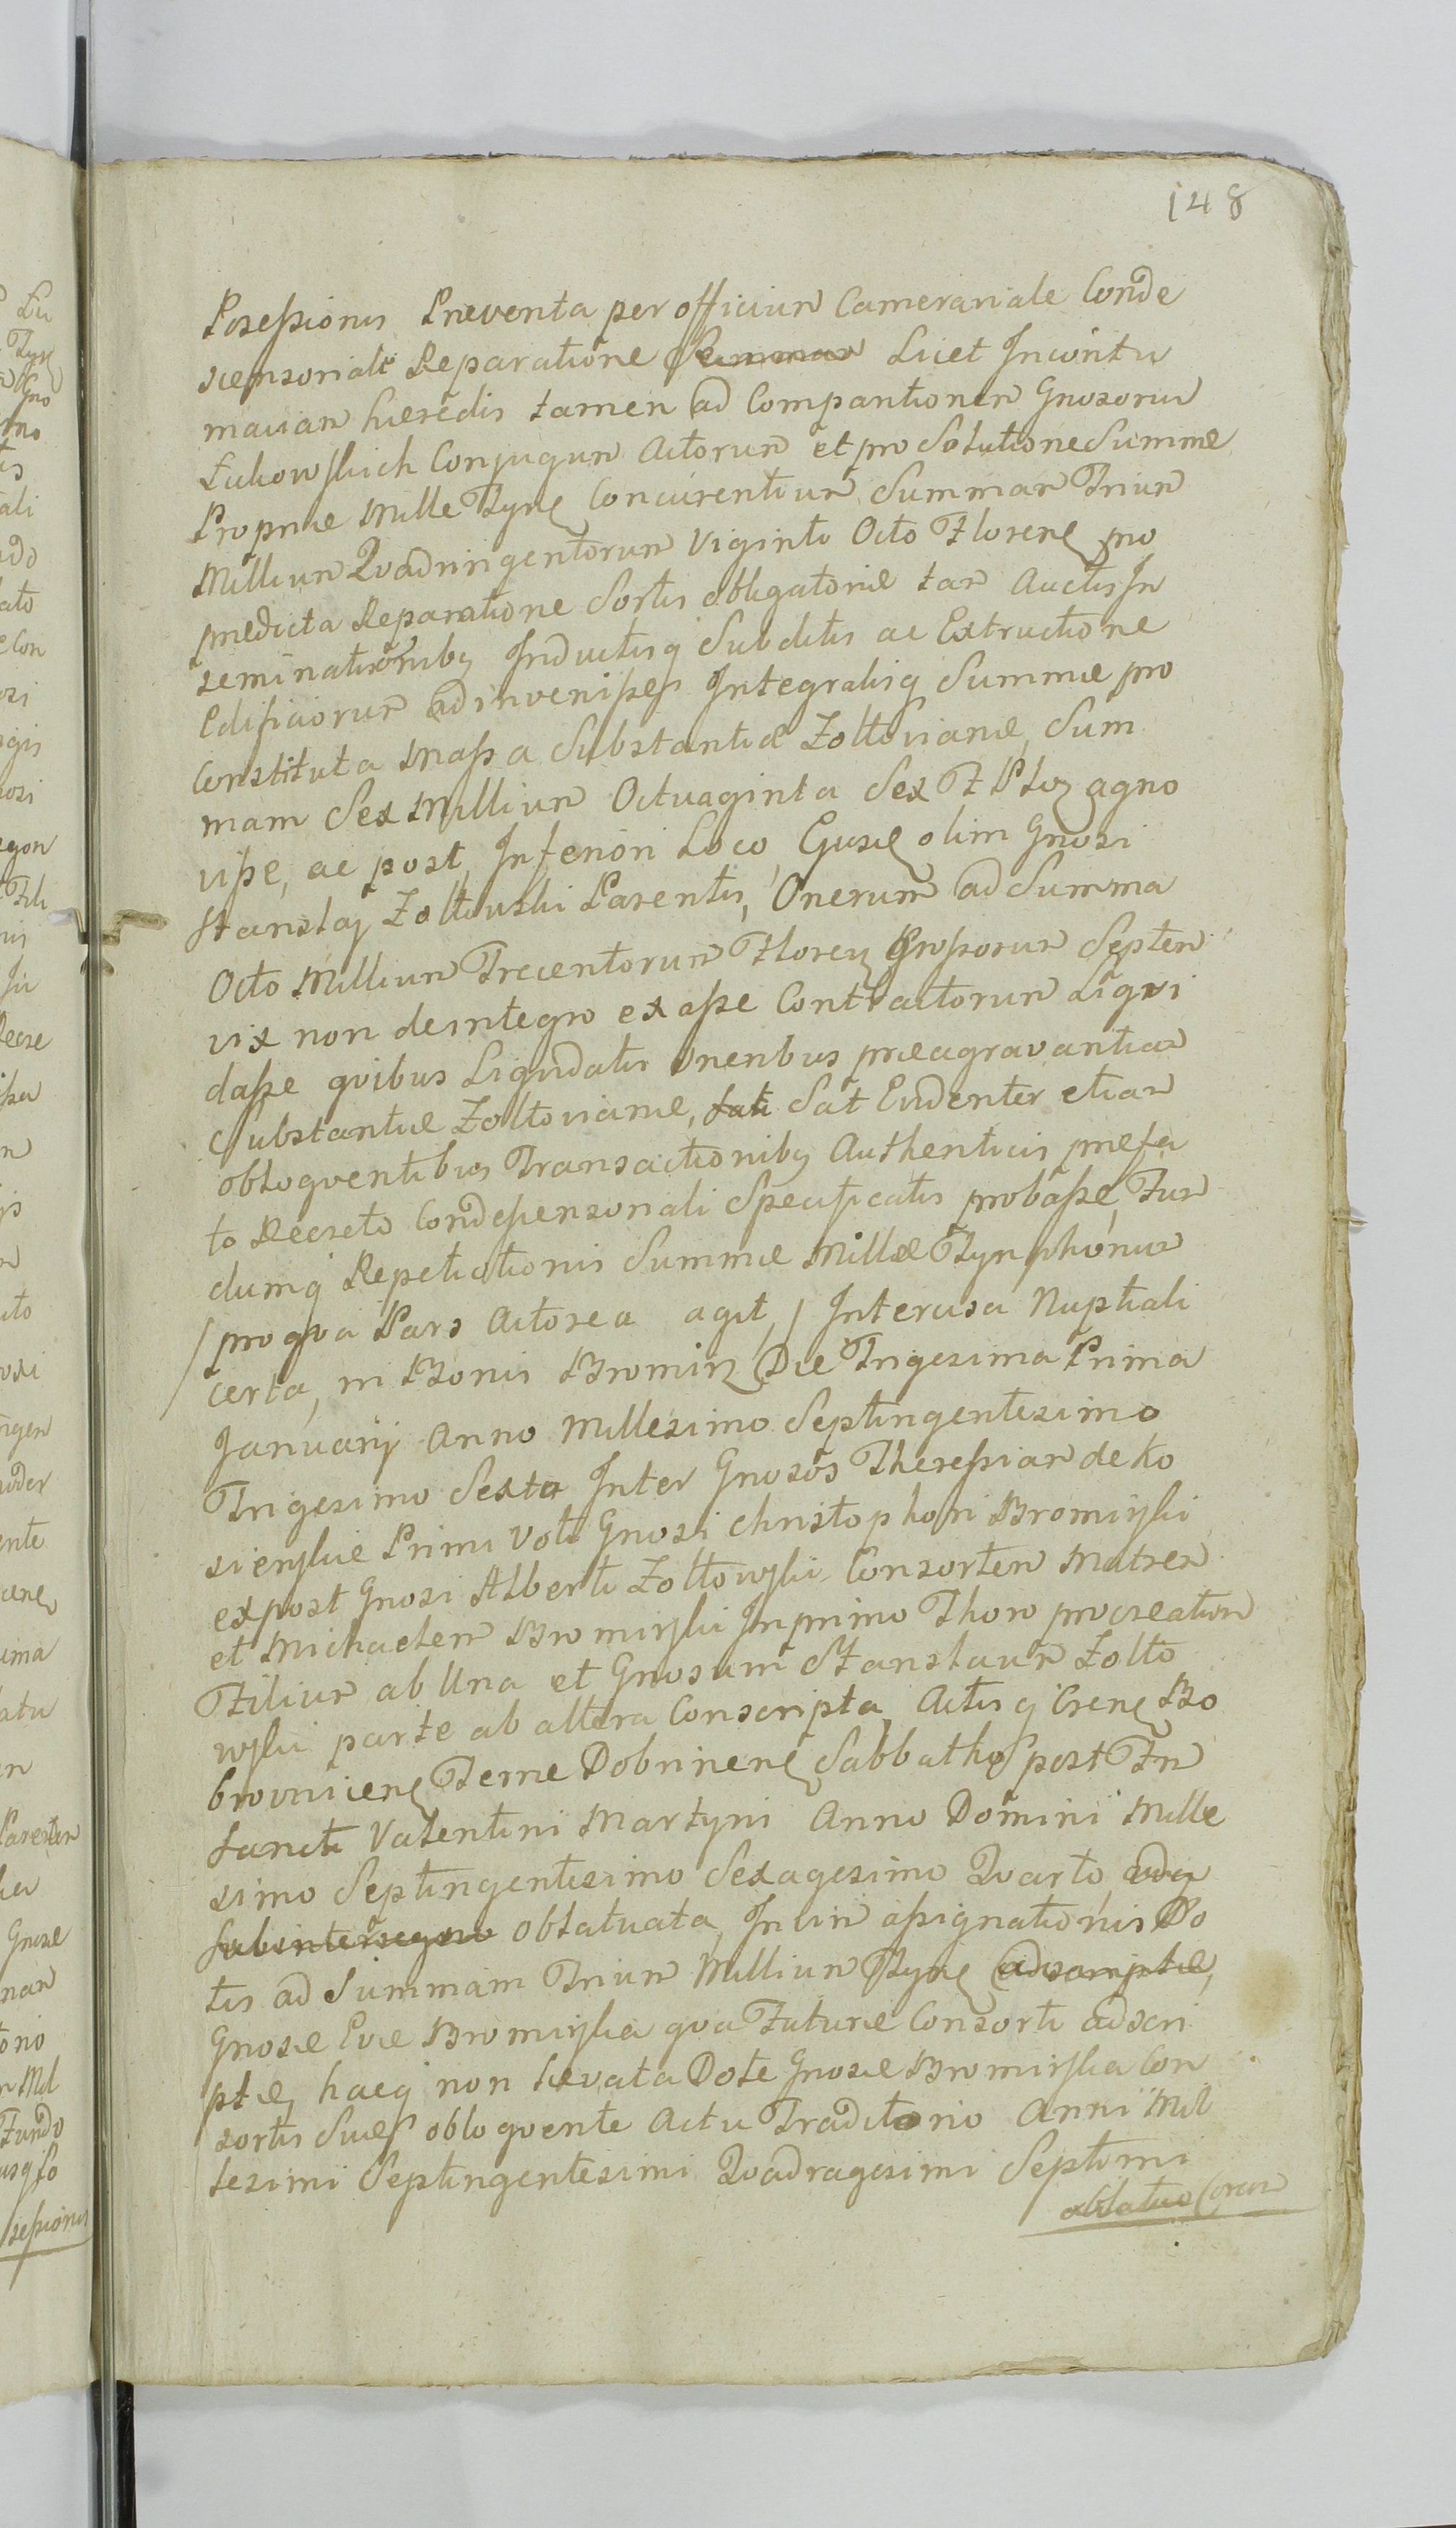 148
Posessionis Preventa per officium Camerariale Conde
scensoriali Reparatione Summar Licet Incontu
maciam hæredis tamen ad Comparitionem Gnosorum
Lukowskich Conjugum Actorum et pro Solutione Summæ
Propriæ Mille Tynf Concurentium, Summam Trium
Millium Quadringentorum Viginti Octo Floren pro
predicta Reparatione Sortis obligatoriæ tam Auctis In
seminationibq Inductisq Subditis ac Extructione
Edificiorum adinvenisse, Integralisq Summæ pro
Constituta Massa Substantiæ Zoltovianæ, Sum
mam Sex Millium Octuaginta Sex F Plo agno
visse, ac post, Inferiori Loco, Ejusd olim Gnosi
Stanslaj Zoltowski Parentis, Onerum ad Summa
Octo Millium Trecentorum Floren Grossorum Septem
vix non deintegro ex asse Contractorum Liqvi
dasse qvibus Liqvidatis Oneribus præagravantiam
Substantiæ Zoltovianæ, Sati Sat Evidenter etiam
obloqventibus Transactionibq Authenticis prefa
to Decreto Condessensoriali Specificatis probasse, Fun
dumq Repetictionis Summæ Millæ Tynphonum
/ pro qva Pars Actorea agit, / Intercisa Nuptiali
certa, in Bonis Bromirz Die Trigesima Prima
Januarij Anno Millesimo Septingentesimo
Trigesimo Sexto Inter Gnosos Theressiam de Ko
sienskie Primi Voti Gnosi Christophori Bromirski
expost Gnosi Alberti Zoltowski Consortem Matrem
et Michaelem Bromirski In primo Thoro procreatum
Filium ab Una et Gnosum Stanslaum Zolto
wski parte ab altera Conscripta, Actisq Cren Bo
brovnicen Terræ Dobrinen Sabbatho post Fm
Sancti Valentini Martyri Anno Domini Mille
simo Septingentesimo Sexagesimo Qvarto,
Sub interregno Oblatvata, In vim assignationis Do
tis ad Summam Trium Millium Tynf adscriptæ,
Gnosæ Evæ Bromirska qva Futuræ Consorti adscri
ptæ, haeq non levata Dote Gnosæ Bromirska Con
sortis Suæ obloqvente Actu Traditorio Anni Mil
lesimi Septingentesimi Qvadragesimi Septimi
oblatuo Coram